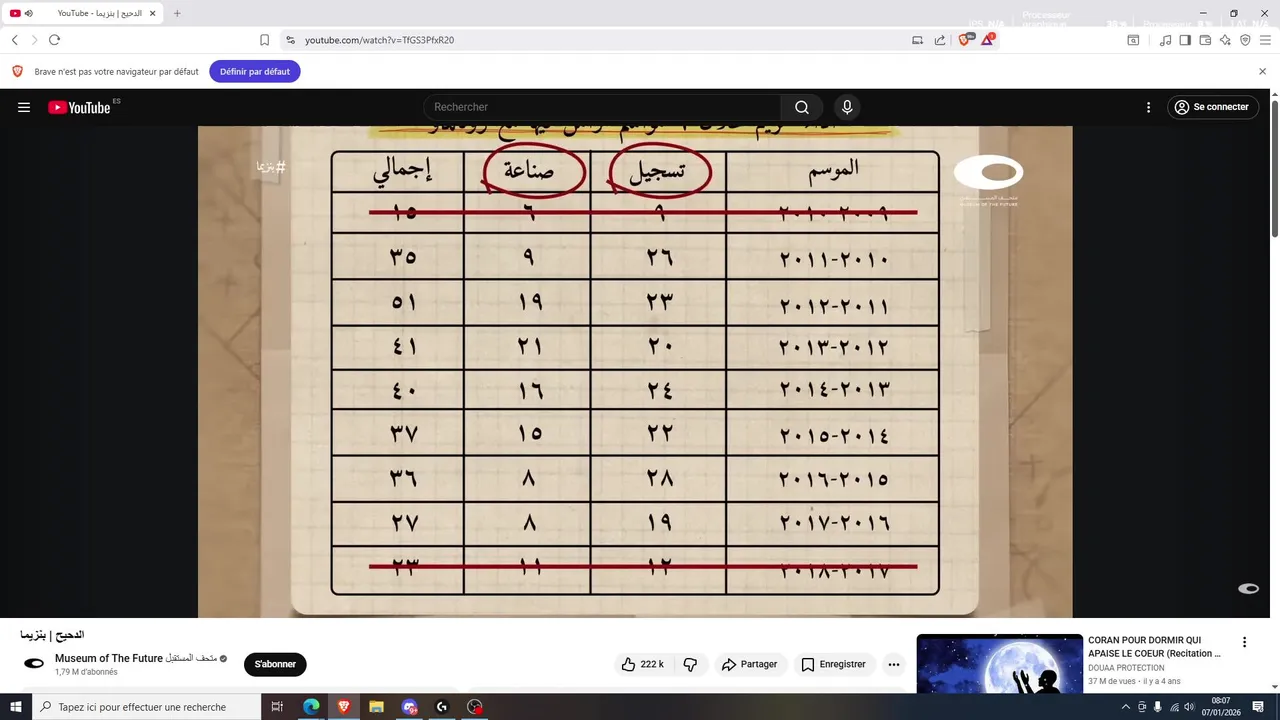 YouTube - الدحيح | بنزيما
youtube.com/watch?v=TfGS3PfxR20
Brave n'est pas votre navigateur par défaut
Définir par défaut
YouTube ES
Rechercher
Se connecter
#بنزيما
متحف المستقبل
MUSEUM OF THE FUTURE
الموسم تسجيل صناعة إجمالي
٢٠٠٩-٢٠١٠ ٩ ٦ ١٥
٢٠١٠-٢٠١١ ٢٦ ٩ ٣٥
٢٠١١-٢٠١٢ ٢٣ ١٩ ٥١
٢٠١٢-٢٠١٣ ٢٠ ٢١ ٤١
٢٠١٣-٢٠١٤ ٢٤ ١٦ ٤٠
٢٠١٤-٢٠١٥ ٢٢ ١٥ ٣٧
٢٠١٥-٢٠١٦ ٢٨ ٨ ٣٦
٢٠١٦-٢٠١٧ ١٩ ٨ ٢٧
٢٠١٧-٢٠١٨ ١٢ ١١ ٢٣
الدحيح | بنزيما
Museum of The Future متحف المستقبل
1,79 M d'abonnés
S'abonner
222 k
Partager
Enregistrer
CORAN POUR DORMIR QUI
APAISE LE COEUR (Recitation ...
DOUAA PROTECTION
37 M de vues • il y a 4 ans
Tapez ici pour effectuer une recherche
08:07
07/01/2026